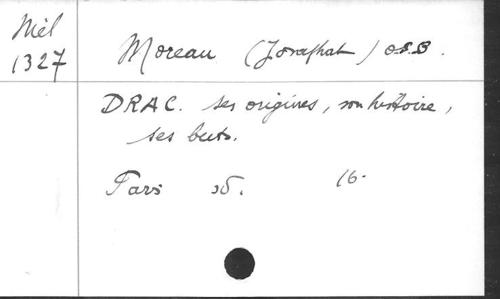 Mél
1327
Moreau (Josaphat) O.S.B.
DRAC. ses origines, son histoire,
ses buts.
Paris sd. 16.